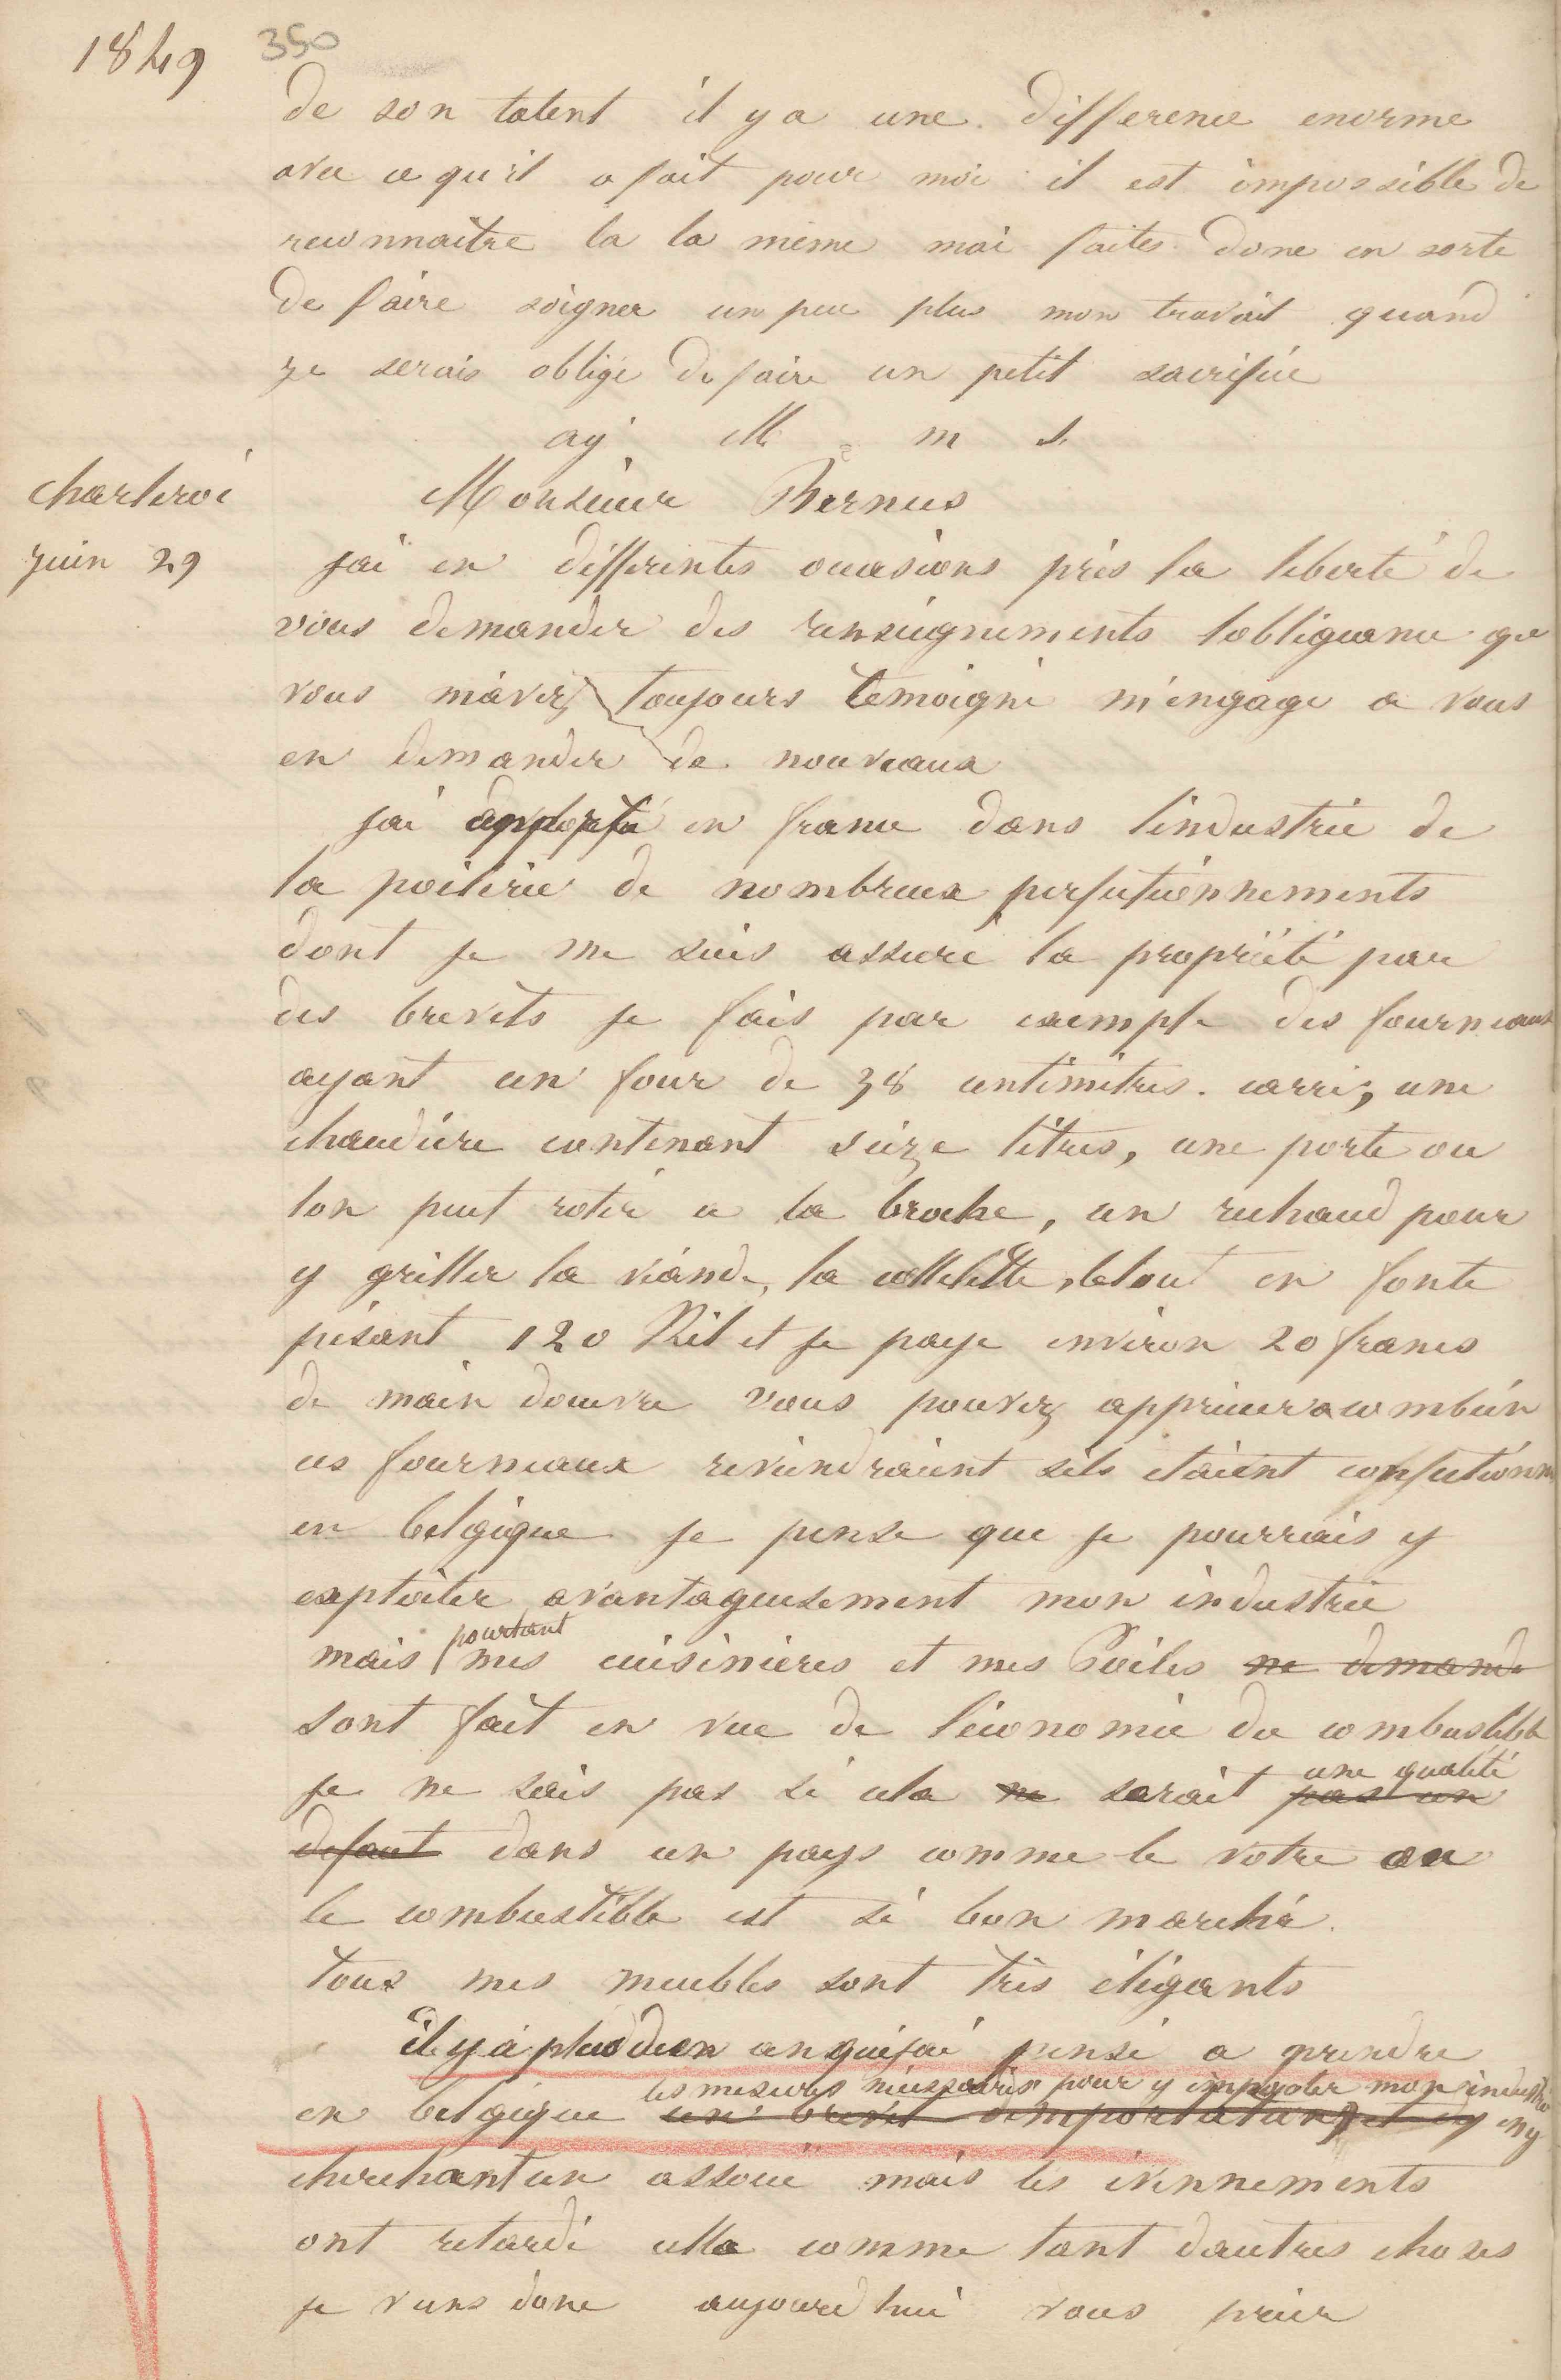 1849 350
de son talent il y a une difference enorme
avec ce qu'il a fait pour moi il est impossible de
reconnaitre la la meme mai faites donc en sorte
de faire soigner un peu plus mon travail quand
je serais obligé de faire un petit sacrifice
ag M m s
charleroi
juin 29
Monsieur Bernus
j'ai en differentes occasions pris la liberté de
vous demander des renseignements lobligeance que
vous m'avez toujours temoigné m'engage a vous
en demander de nouveaux
jai apporté en france dans l'industrie de
la poëlerie de nombreux perfectionnements
dont je me suis assuré la propriété par
des brevets je fais par exemple des fourneaux
ayant un four de 38 centimètres. carré, une
chaudière contenant seize litres, une porte ou
lon peut rotir a la broche, un rechaud pour
y griller la viande, la cottelette, le tout en fonte
pesant 120 Kil et je paye environ 20 francs
de main douvre vous pouvez apprecier a combien
ces fourneaux reviendraient sils etaient confectionn
en belgique je pense que je pourrais y
exploiter avantageusement mon industrie
pourtant
mais mes cuisinières et mes Poëles ne demande
sont fait en vue de l'économie du combustible
une qualité
je ne sais pas si cela ne serait pas un
defaut dans un pays comme le votre ou
le combustible est si bon marché.
tous mes meubles sont très élégants
il y a plus d'un an que j'ai pensé a prendre
les mesures nécessaires pour y importer mon industrie
en belgique un brevet d'importation et dy en y
cherchant un associé mais les evennements
ont retardé cella comme tant dautres choses
je viens donc aujourd'hui vous prier